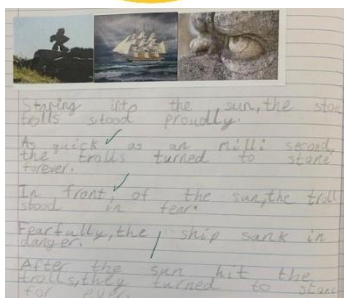 Staring into the sun, the stone
trolls stood proudly.
As quick as an milli second,
the trolls turned to stone
forever.
In front, of the sun, the troll
stood in fear.
Fearfully, the ship sank in
danger.
After the sun hit the
trolls, they turned to stone
for ever.